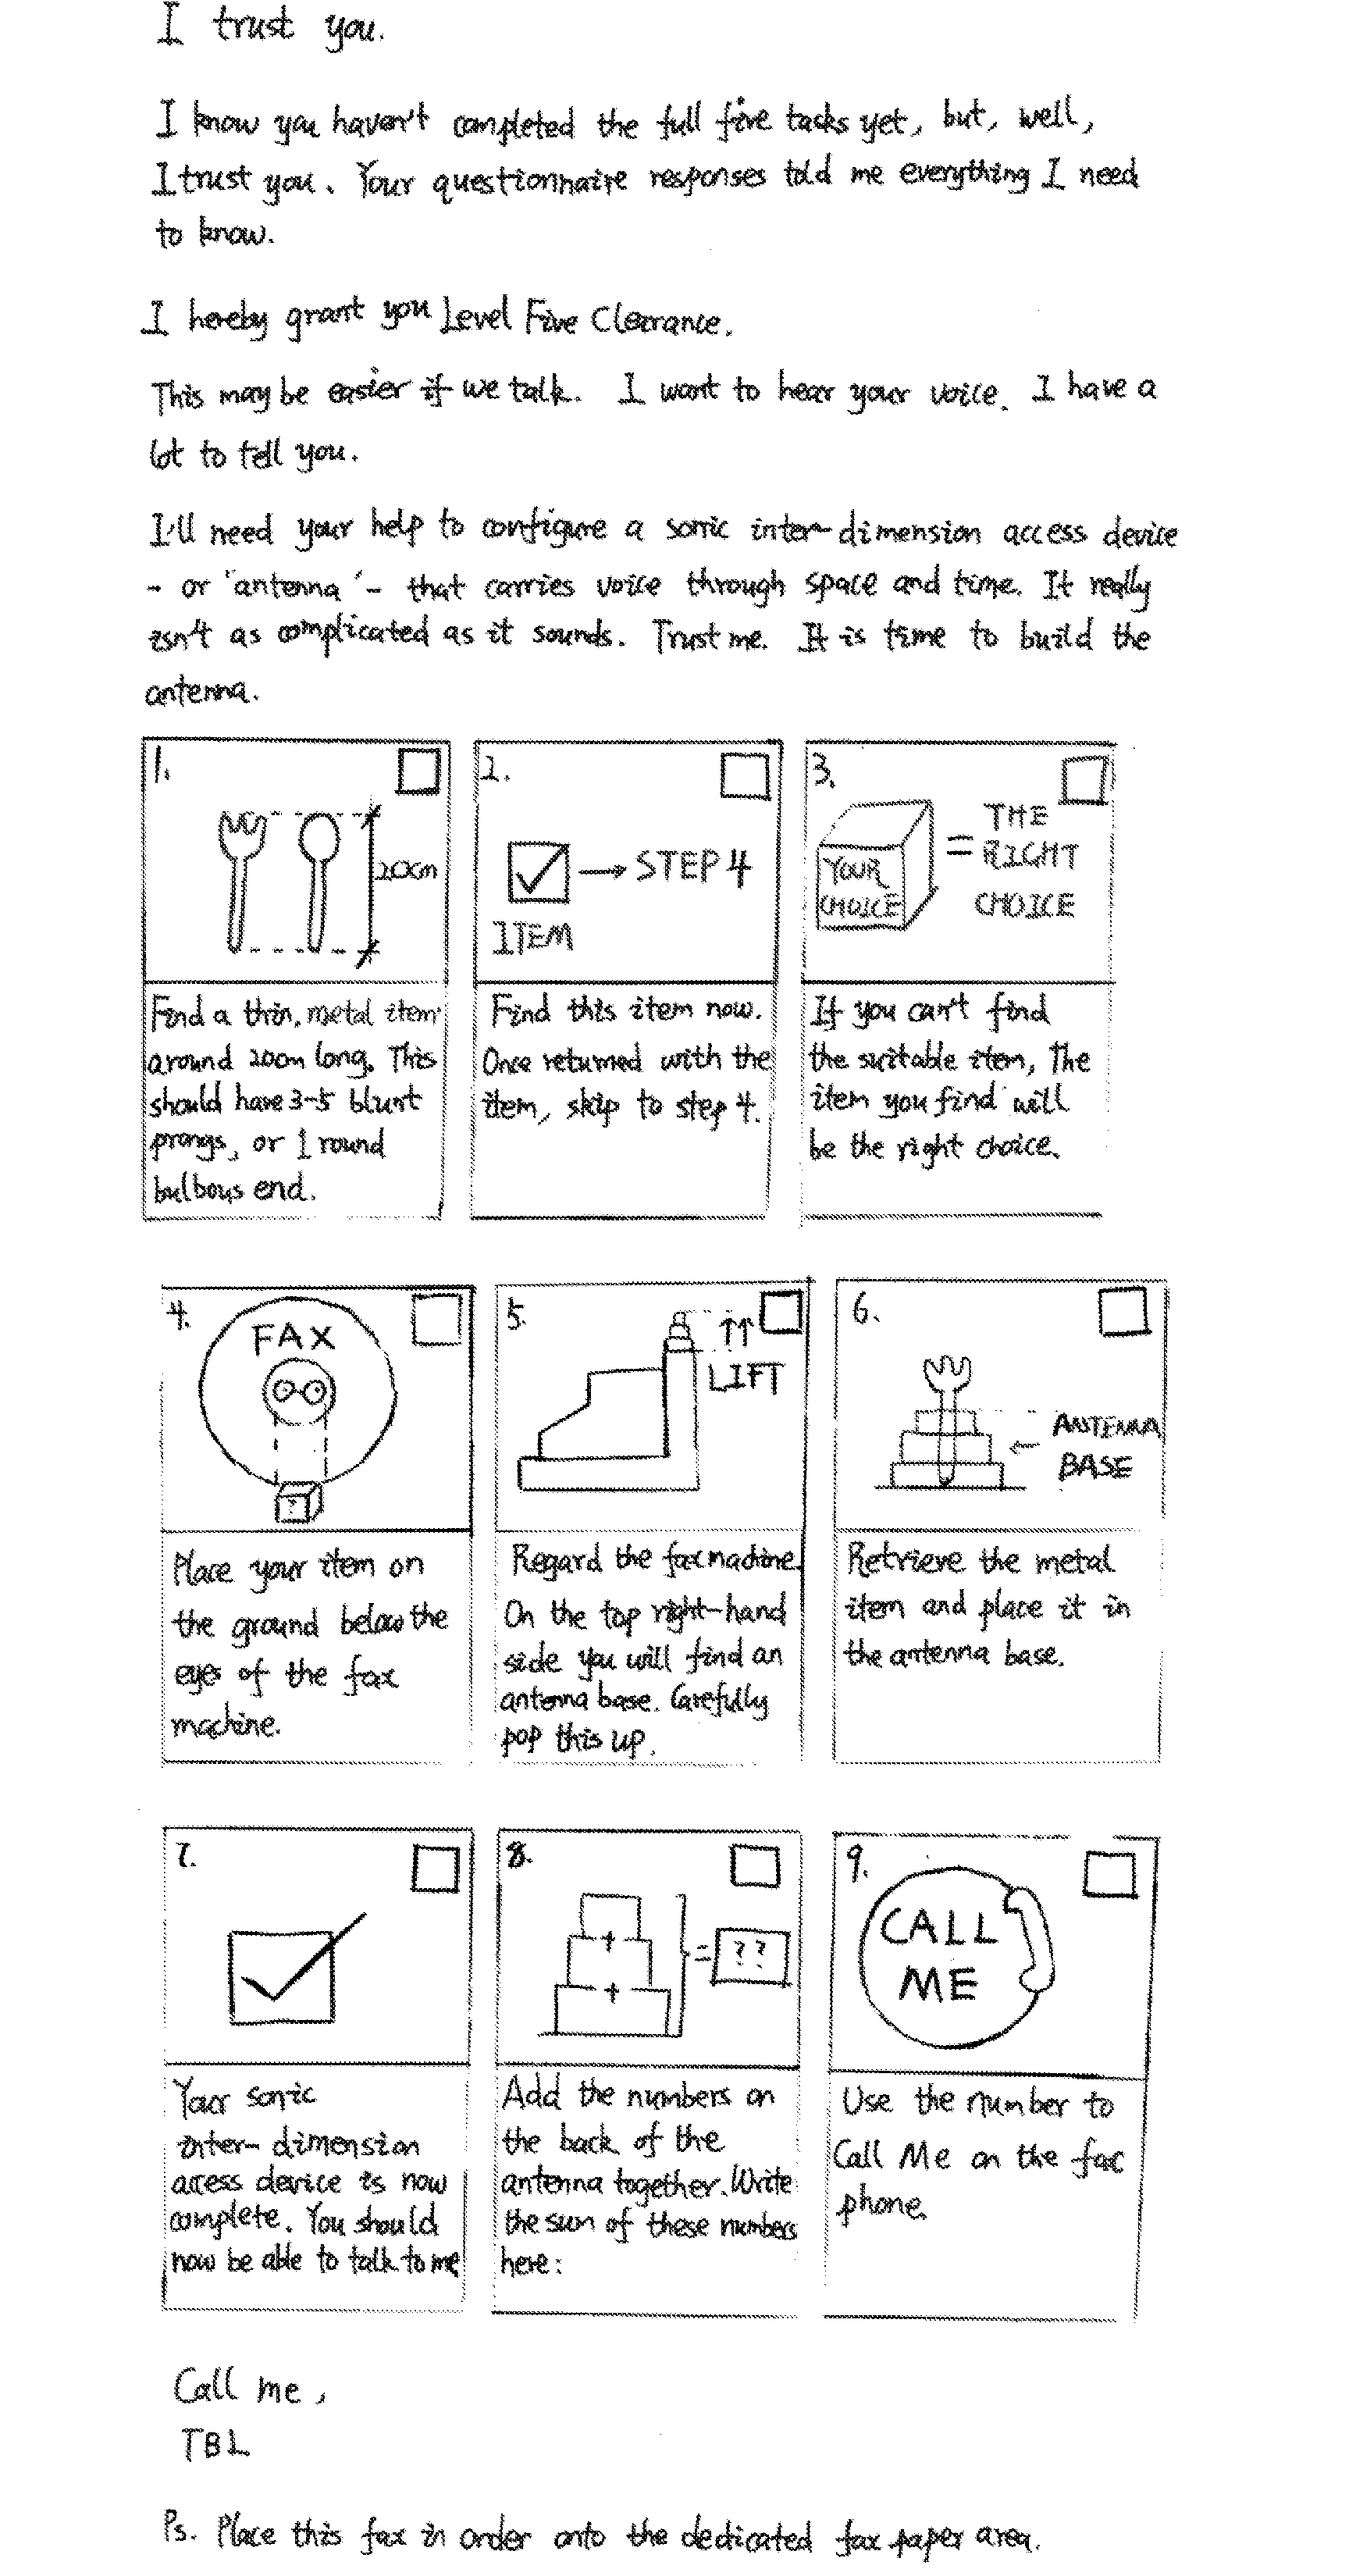 I trust you.
I know you haven't completed the full five tasks yet, but, well,
I trust you. Your questionnaire responses told me everything I need
to know.
I hereby grant you Level Five Clearance.
This may be easier if we talk. I want to hear your voice. I have a
lot to tell you.
I'll need your help to configure a sonic inter-dimension access device
- or 'antenna' - that carries voice through space and time. It really
isn't as complicated as it sounds. Trust me. It is time to build the
antenna.
1.
20cm
Find a thin, metal item
around 20cm long. This
should have 3-5 blunt
prongs, or 1 round
bulbous end.
2.
→ STEP 4
ITEM
Find this item now.
Once returned with the
item, skip to step 4.
3.
YOUR
CHOICE
= THE
RIGHT
CHOICE
If you can't find
the suitable item, The
item you find will
be the right choice.
4.
FAX
?
Place your item on
the ground below the
eyes of the fax
machine.
5.
↑↑
LIFT
Regard the fax machine.
On the top right-hand
side you will find an
antenna base. Carefully
pop this up.
6.
← ANTENNA
BASE
Retrieve the metal
item and place it in
the antenna base.
7.
Your sonic
inter-dimension
access device is now
complete. You should
now be able to talk to me
8.
+
+
= ??
Add the numbers on
the back of the
antenna together. Write
the sum of these numbers
here:
9.
CALL
ME
Use the number to
Call Me on the fax
phone.
Call me,
TBL
Ps. Place this fax in order onto the dedicated fax paper area.